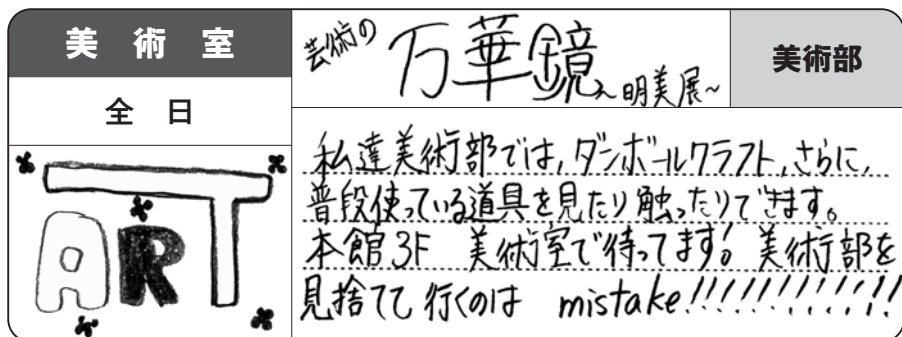 美術室
全日
ART
芸術の
万華鏡
~明美展~
美術部
私達美術部では,ダンボールクラフト,さらに,
普段使っている道具を見たり触ったりできます。
本館3F 美術室で待ってます! 美術部を
見捨てて行くのは mistake!!!!!!!!!!!!